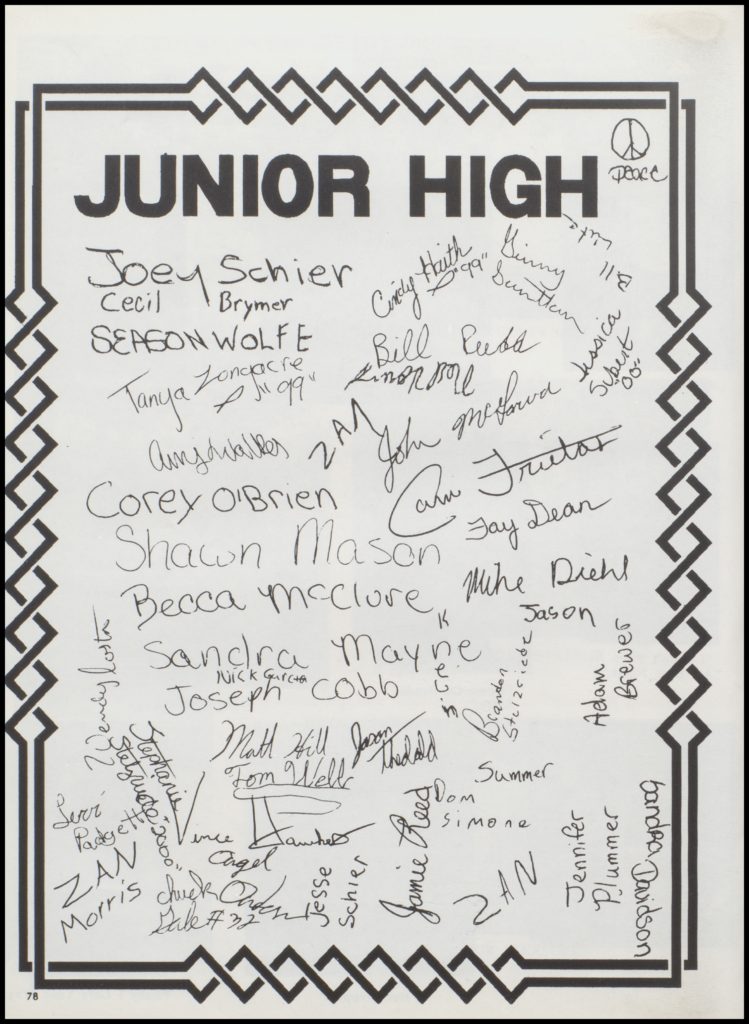 JUNIOR HIGH
PEACE
Joey Schier
Cecil Brymer
SEASON WOLFE
Cindy "99"
Ginny
Bill
Bill
Jessica
"00"
Tanya Longacre
"99"
Amy Walker
ZAN
John
Corey O'Brien
Cami
Jay Dean
Shawn Mason
Mike Diehl
Becca McClure
Jason
Sandra Mayne
Nick Garcia
Joseph Cobb
Wendy
Brandon
Adam
Brewer
Matt Hill
Jason
Tom Well
Summer
Stephanie
"2000"
Terri
Padgett
Vince Sanchez
Angel
Dom
Simone
Jamie Reed
ZAN
Morris
Chuck
Gale #32
Jesse
Schier
ZAN
Jennifer
Plummer
Sandra Davidson
78